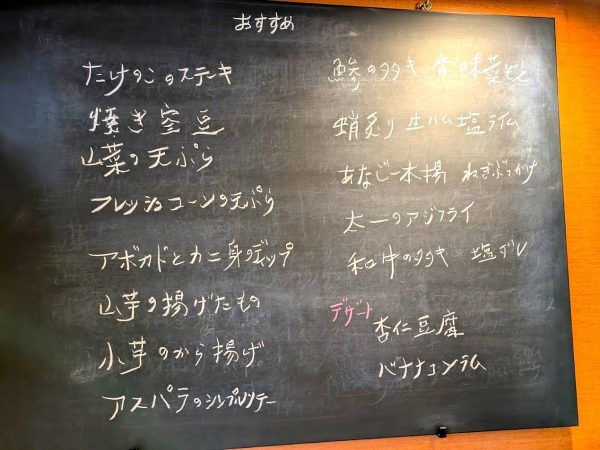 おすすめ
たけのこのステーキ
焼き空豆
山菜の天ぷら
フレッシュコーンの天ぷら
アボカドとカニ身のディップ
山芋の揚げたもの
小芋のから揚げ
アスパラのシンプルソテー
鯵のタタキ 香味菜
蛸炙り 生ハム塩ライム
あなご一本揚 ねぎぶっかけ
太一のアジフライ
和牛のタタキ 塩ダレ
デザート
杏仁豆腐
バナナ ラム